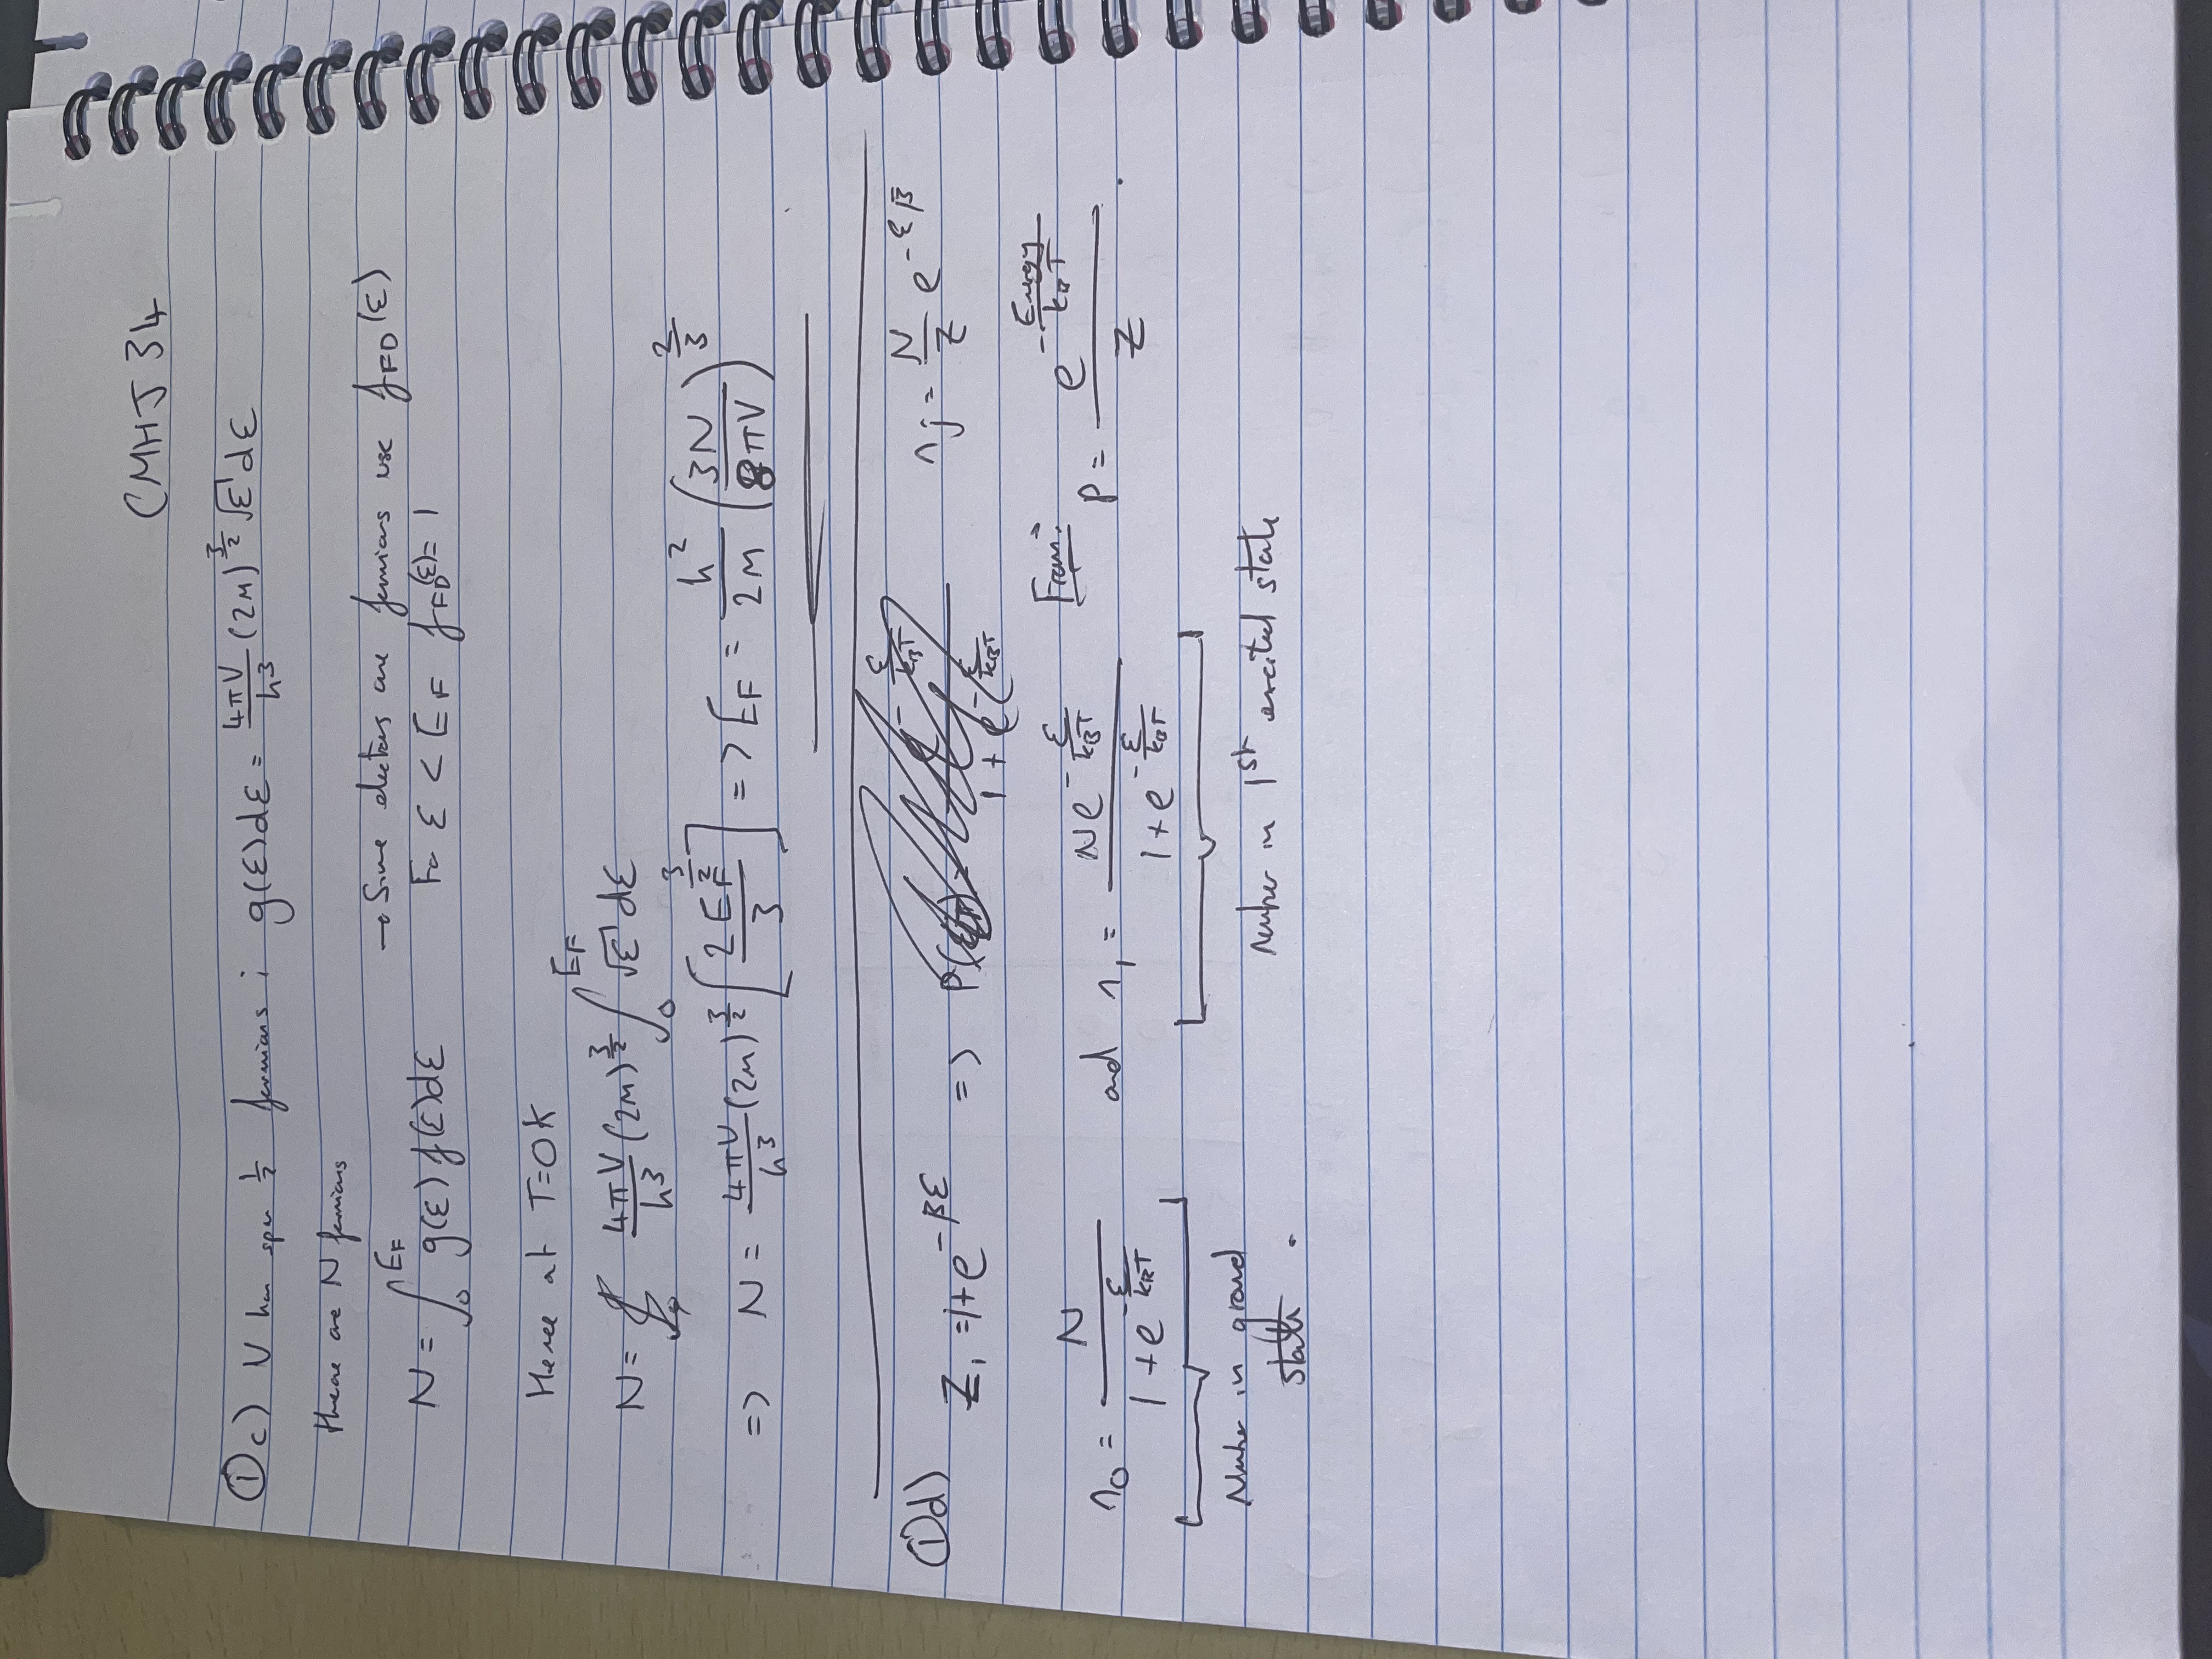 CMHJ34
① c) V has spin 1/2 fermions ; g(ε)dε = 4πV/h³ (2m)^(3/2) √ε dε
there are N fermions
N = ∫₀^(E_F) g(ε) f(ε)dε → Since electrons are fermions use f_FD(ε)
For ε < E_F f_FD(ε) = 1
Hence at T=0K
N = 4πV/h³ (2m)^(3/2) ∫₀^(E_F) √ε dε
=> N = 4πV/h³ (2m)^(3/2) [2E_F^(3/2)/3] => E_F = h²/2m (3N/8πV)^(2/3)
① d) Z₁ = 1+e^(-βε) => n_j = N/Z e^(-εβ)
n₀ = N/(1+e^(-ε/k_BT)) and n₁ = Ne^(-ε/k_BT)/(1+e^(-ε/k_BT)) From: P = e^(-Energy/k_BT)/Z .
Number in ground state . number in 1st excited state